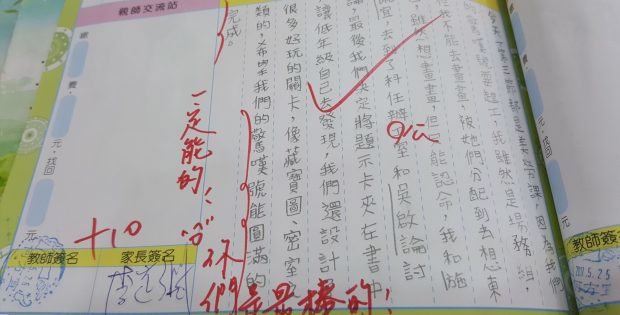 今天第三節都是美勞課，因為我們
的驚嘆號要趕工，我雖然是場務組
但我不能去畫畫，被她們分配到去想東
，雖然想畫畫，但只能認命，我和施
宜，去到了科任辦公室和吳啟論討
論，最後我們決定將題示卡夾在書中
讓低年級自己去發現，我們還設計
很多好玩的關卡，像藏寶圖、密室
類的，希望我們的驚嘆號能圓滿的
完成。
公
一定能的！
你們是最棒的！
+10
親師交流站
繳 費 元，找回 元
元，找回 元
教師簽名
家長簽名
教師簽
2017.5.25